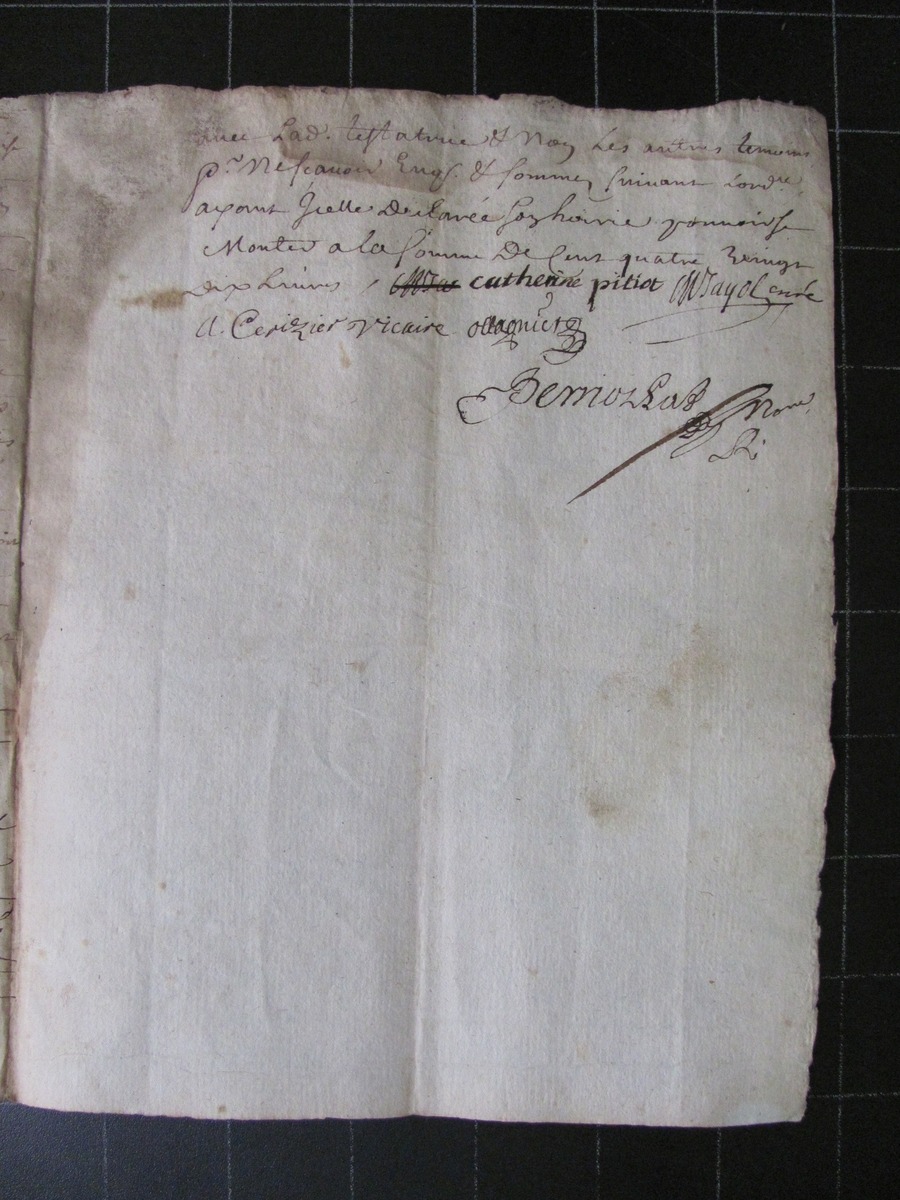 avec Lad. testatrice & Non Les autres temoins
pr. Ne scavoir Enqs. & sommez suivant lordre,
ayant Icelle declarée son hoirie pouvoir se
Monter a la somme De Cent quatre Veingt
dix Livres, catherine pitiot Mayol curé
A. Cerizier vicaire odagnier
Bernoz Lad Nore.
R.